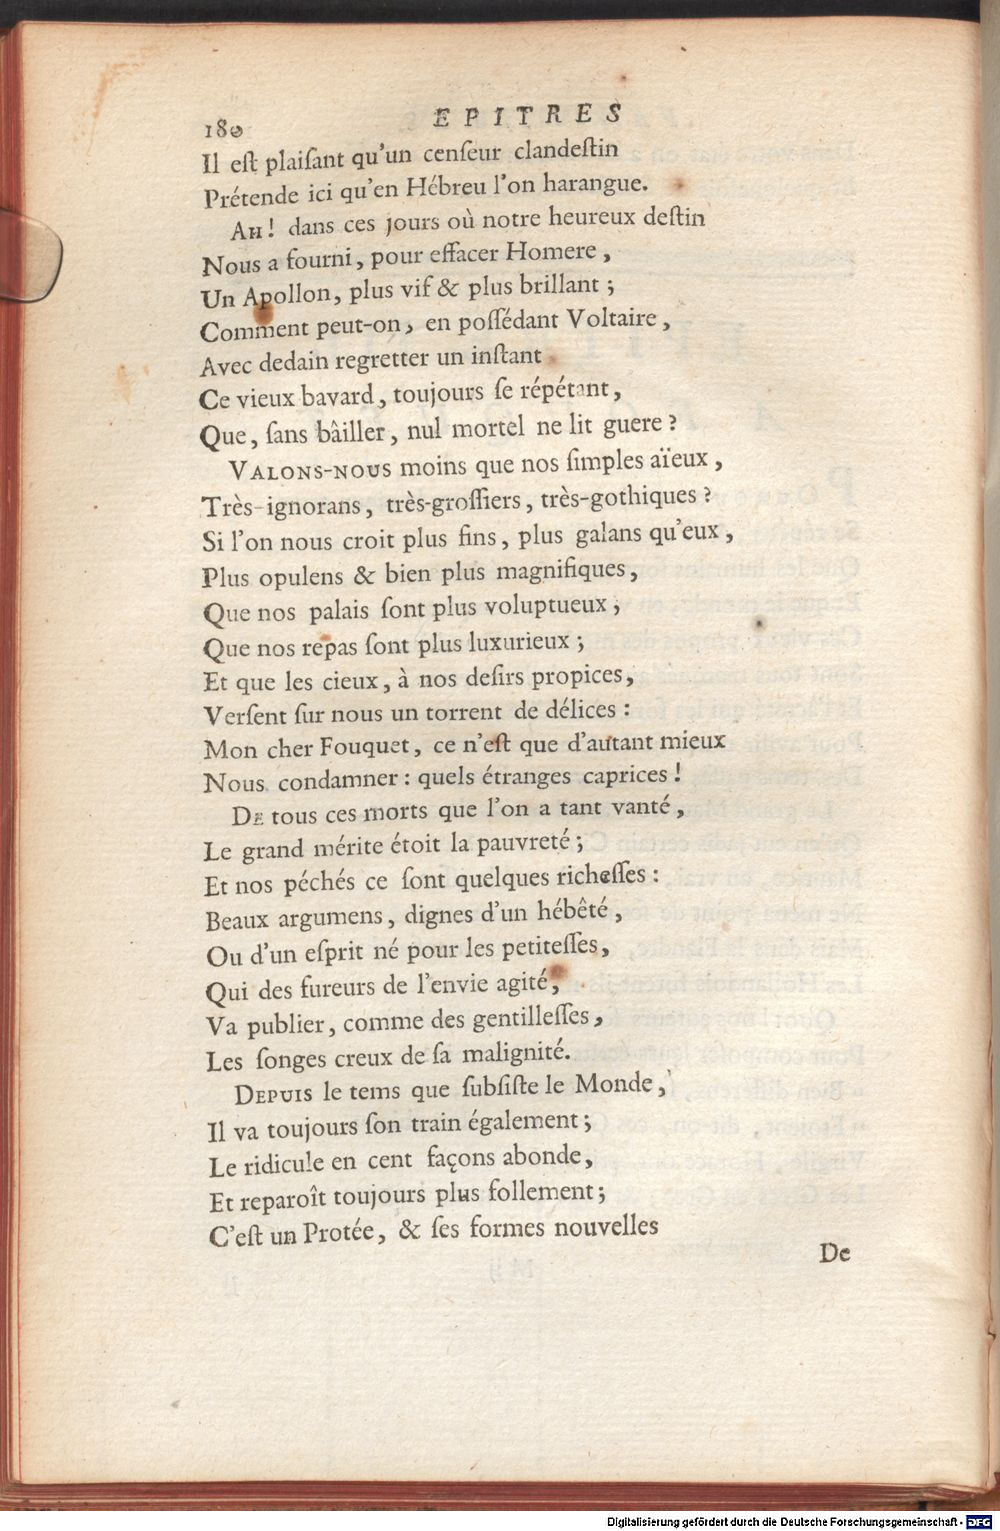 180 EPITRES
Il eſt plaiſant qu'un cenſeur clandeſtin
Prétende ici qu'en Hébreu l'on harangue.
AH ! dans ces jours où notre heureux deſtin
Nous a fourni, pour effacer Homere,
Un Apollon, plus vif & plus brillant ;
Comment peut-on, en poſſédant Voltaire,
Avec dedain regretter un inſtant
Ce vieux bavard, toujours ſe répétant,
Que, ſans bâiller, nul mortel ne lit guere ?
VALONS-NOUS moins que nos ſimples aïeux,
Très-ignorans, très-groſſiers, très-gothiques ?
Si l'on nous croit plus fins, plus galans qu'eux,
Plus opulens & bien plus magnifiques,
Que nos palais ſont plus voluptueux ;
Que nos repas ſont plus luxurieux ;
Et que les cieux, à nos deſirs propices,
Verſent ſur nous un torrent de délices :
Mon cher Fouquet, ce n'eſt que d'autant mieux
Nous condamner : quels étranges caprices !
DE tous ces morts que l'on a tant vanté,
Le grand mérite étoit la pauvreté ;
Et nos péchés ce ſont quelques richeſſes :
Beaux argumens, dignes d'un hébêté,
Ou d'un eſprit né pour les petiteſſes,
Qui des fureurs de l'envie agité,
Va publier, comme des gentilleſſes,
Les ſonges creux de ſa malignité.
DEPUIS le tems que ſubſiſte le Monde,
Il va toujours ſon train également ;
Le ridicule en cent façons abonde,
Et reparoît toujours plus follement ;
C'eſt un Protée, & ſes formes nouvelles
De
Digitalisierung gefördert durch die Deutsche Forschungsgemeinschaft - DFG